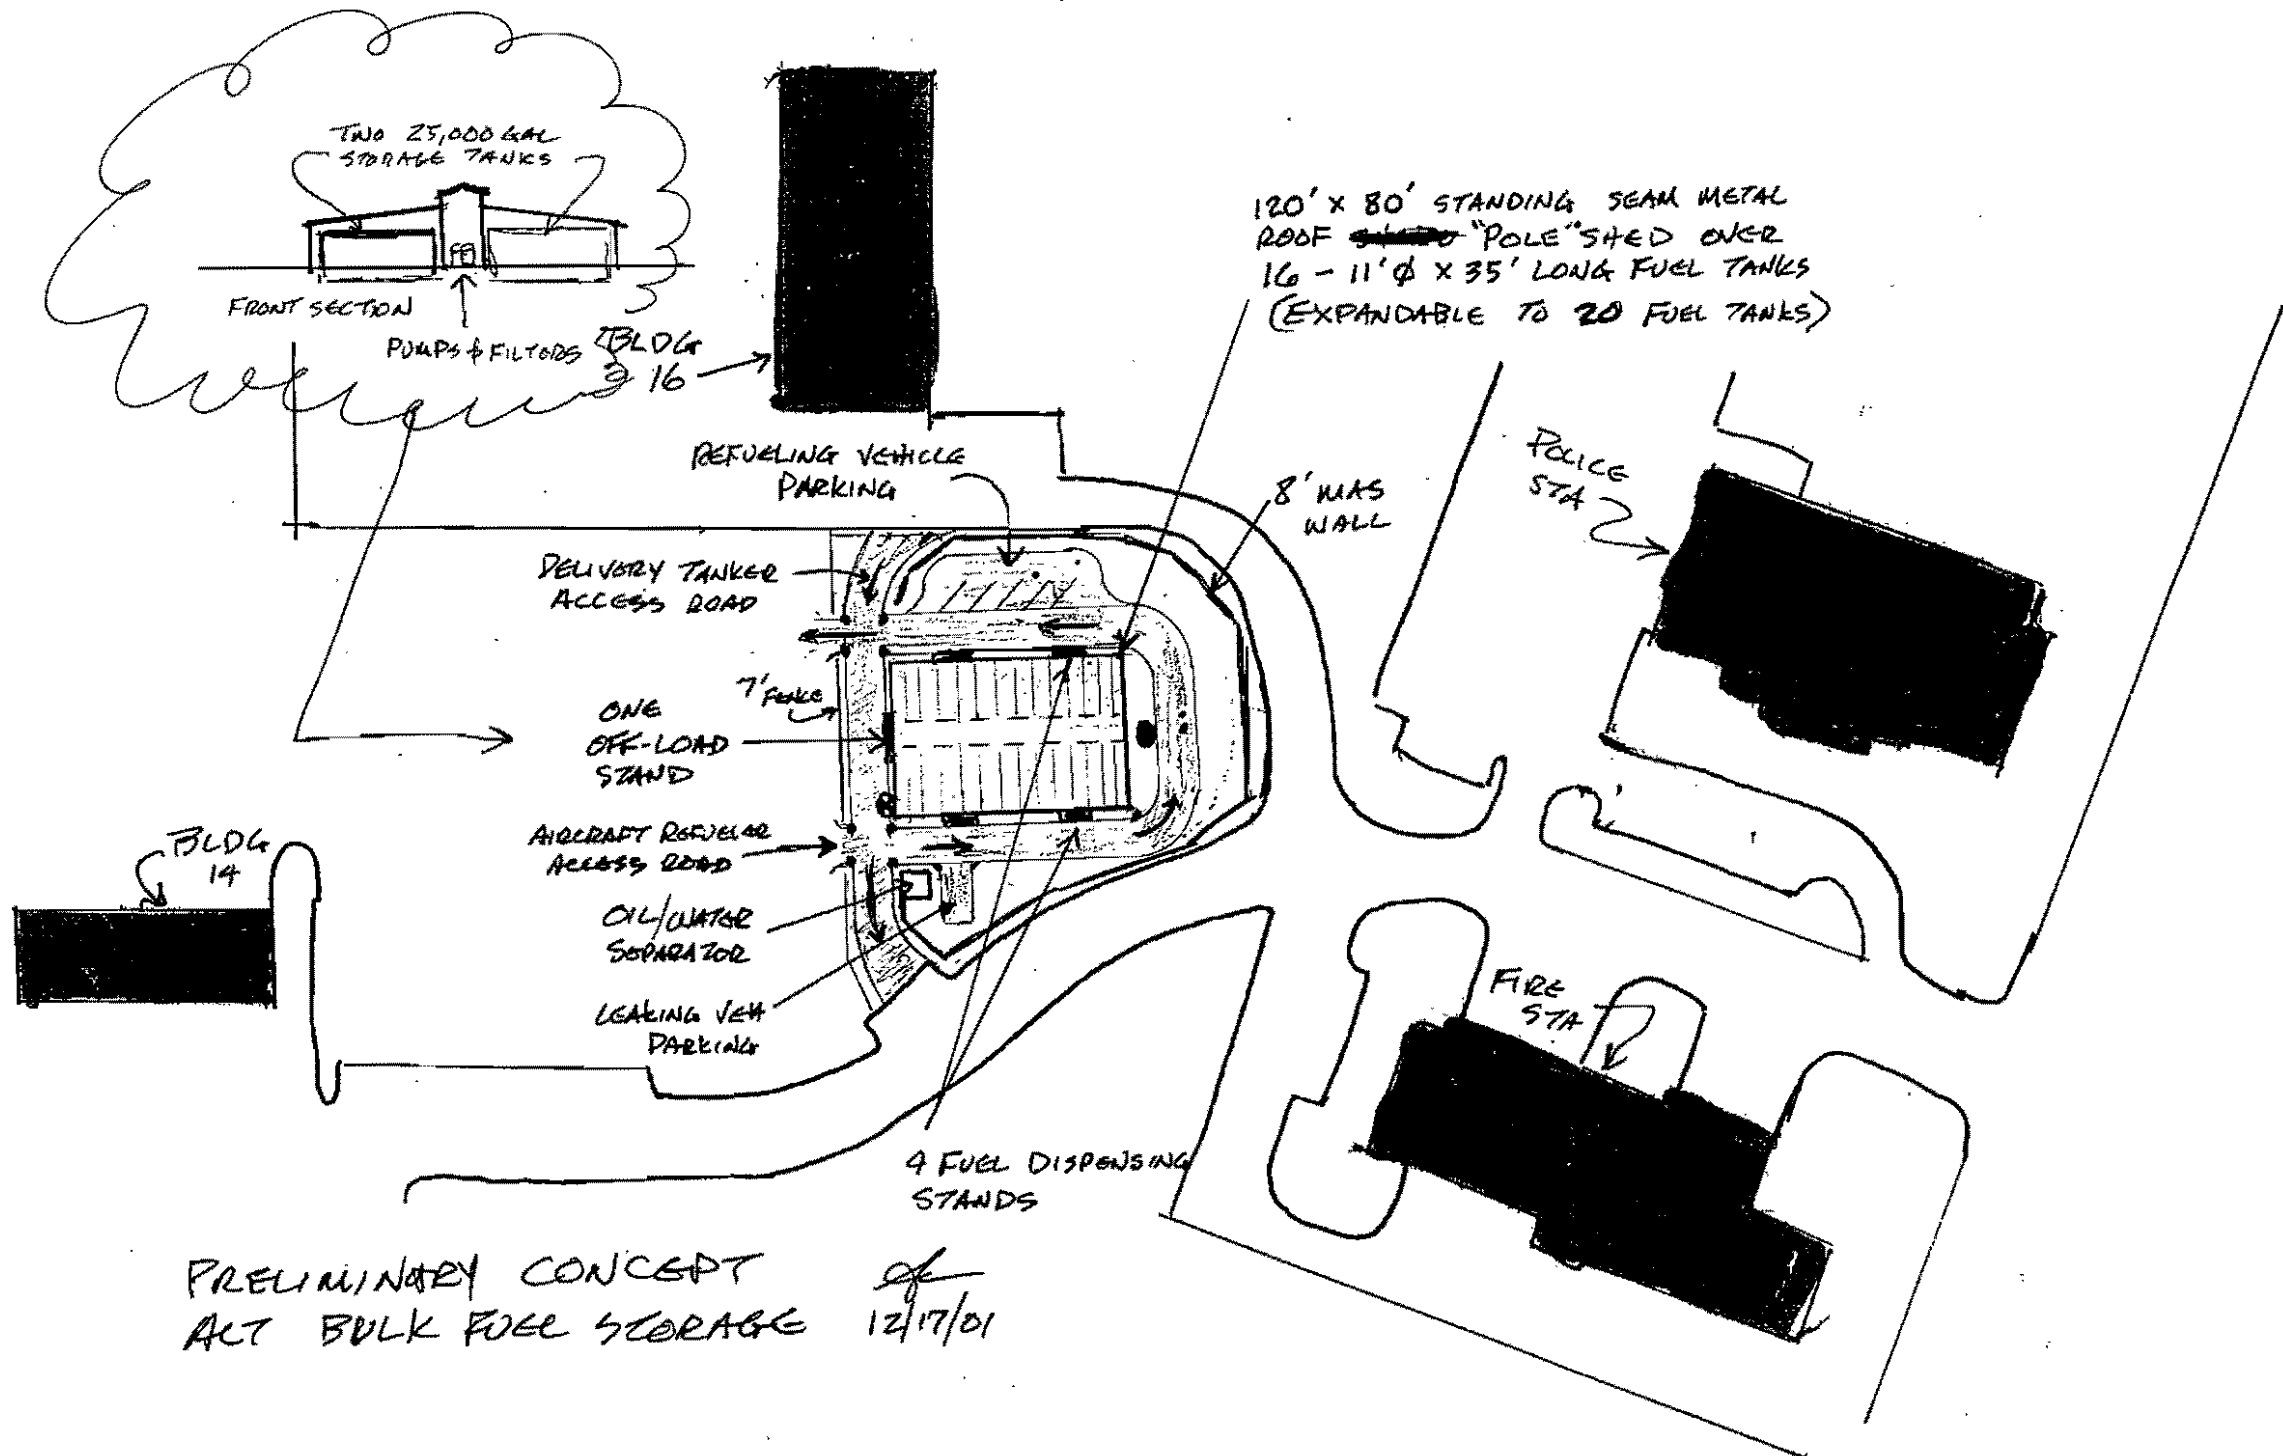 TWO 25,000 GAL
STORAGE TANKS
FRONT SECTION
PUMPS & FILTORS
BLDG
16
120' X 80' STANDING SEAM METAL
ROOF "POLE" SHED OVER
16 - 11' Ø X 35' LONG FUEL TANKS
(EXPANDABLE TO 20 FUEL TANKS)
REFUELING VEHICLE
PARKING
8' MAS
WALL
POLICE
STA
DELIVERY TANKER
ACCESS ROAD
7' FENCE
ONE
OFF-LOAD
STAND
AIRCRAFT REFUELER
ACCESS ROAD
BLDG
14
OIL/WATER
SEPARATOR
LEAKING VEH
PARKING
FIRE
STA
4 FUEL DISPENSING
STANDS
PRELIMINARY CONCEPT
ALT BULK FUEL STORAGE
12/17/01